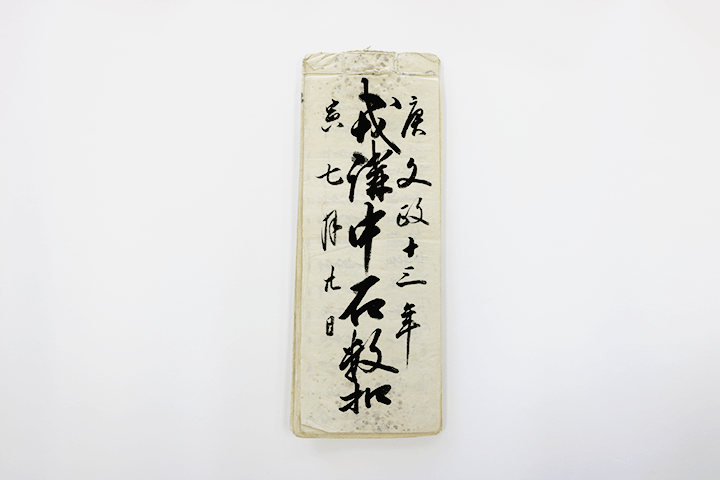 庚文政十三年
戎講中石数扣
寅七月九日